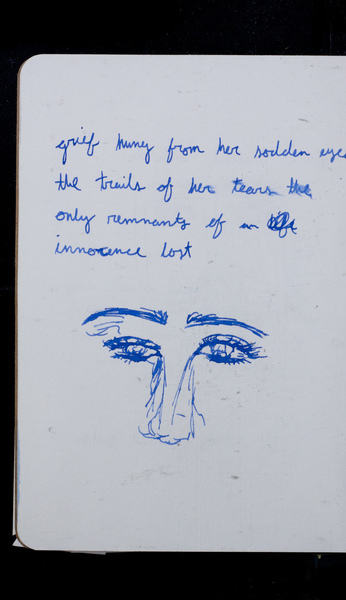 grief hung from her sodden eyes
the trails of her tears the
only remnants of an
innocence lost